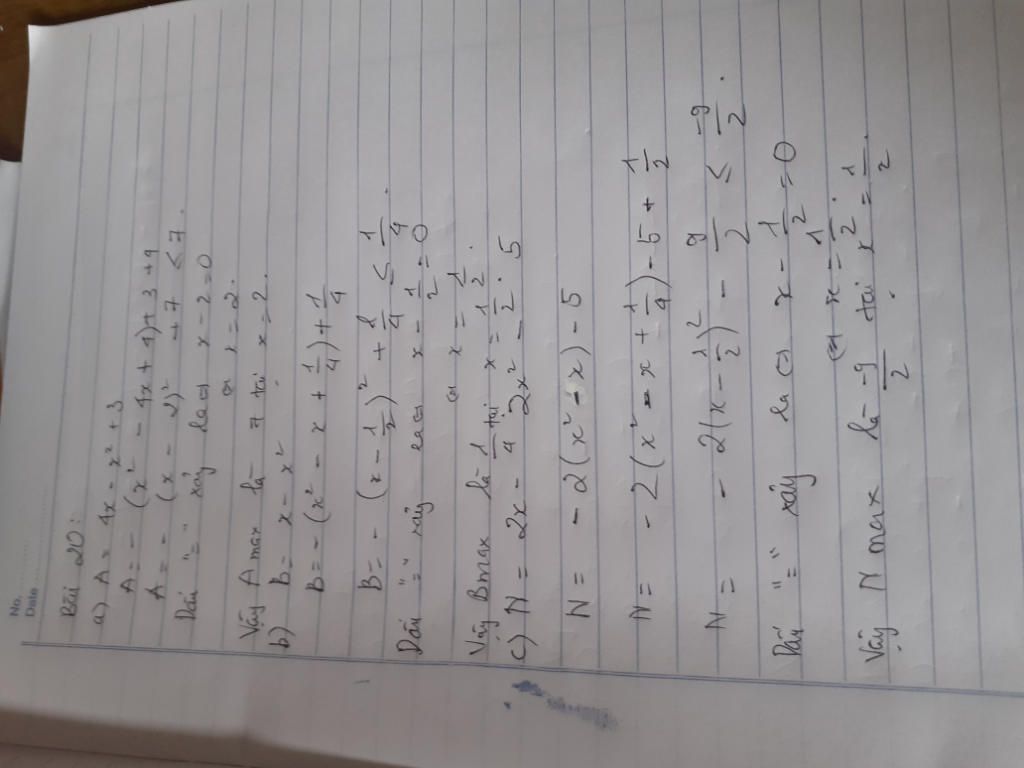 No.
Date
Bài 20:
a) A = 4x - x² + 3
A = - (x² - 4x + 4) + 3 + 4
A = - (x - 2)² + 7 ≤ 7.
Dấu "=" xảy ra ⇔ x - 2 = 0
⇔ x = 2.
Vậy Amax là 7 tại x = 2.
b) B = x - x²
B = - (x² - x + 1/4) + 1/4
B = - (x - 1/2)² + 1/4 ≤ 1/4.
Dấu "=" xảy ra ⇔ x - 1/2 = 0
⇔ x = 1/2.
Vậy Bmax là 1/4 tại x = 1/2.
c) N = 2x - 2x² - 5
N = - 2(x² - x) - 5
N = - 2(x² - x + 1/4) - 5 + 1/2
N = - 2(x - 1/2)² - 9/2 ≤ -9/2.
Dấu "=" xảy ra ⇔ x - 1/2 = 0
⇔ x = 1/2.
Vậy N max là -9/2 tại x = 1/2.